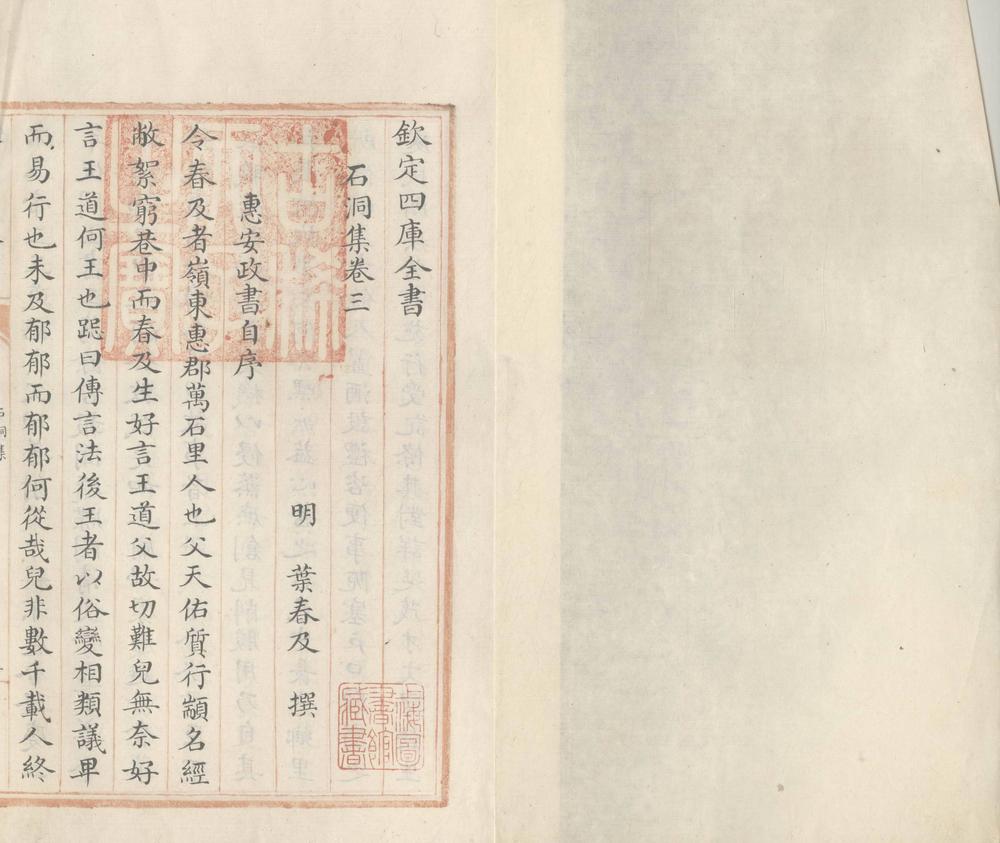 欽定四庫全書
石洞集卷三
明 葉春及 撰
惠安政書自序
令春及者嶺東惠郡萬石里人也父天佑質行顓名經
敝絮窮巷中而春及生好言王道父故切難兒無奈好
言王道何王也跽曰傳言法後王者以俗變相類議卑
而易行也未及郁郁而郁郁何從哉兒非數千載人終
石洞集
圖
書館
藏書